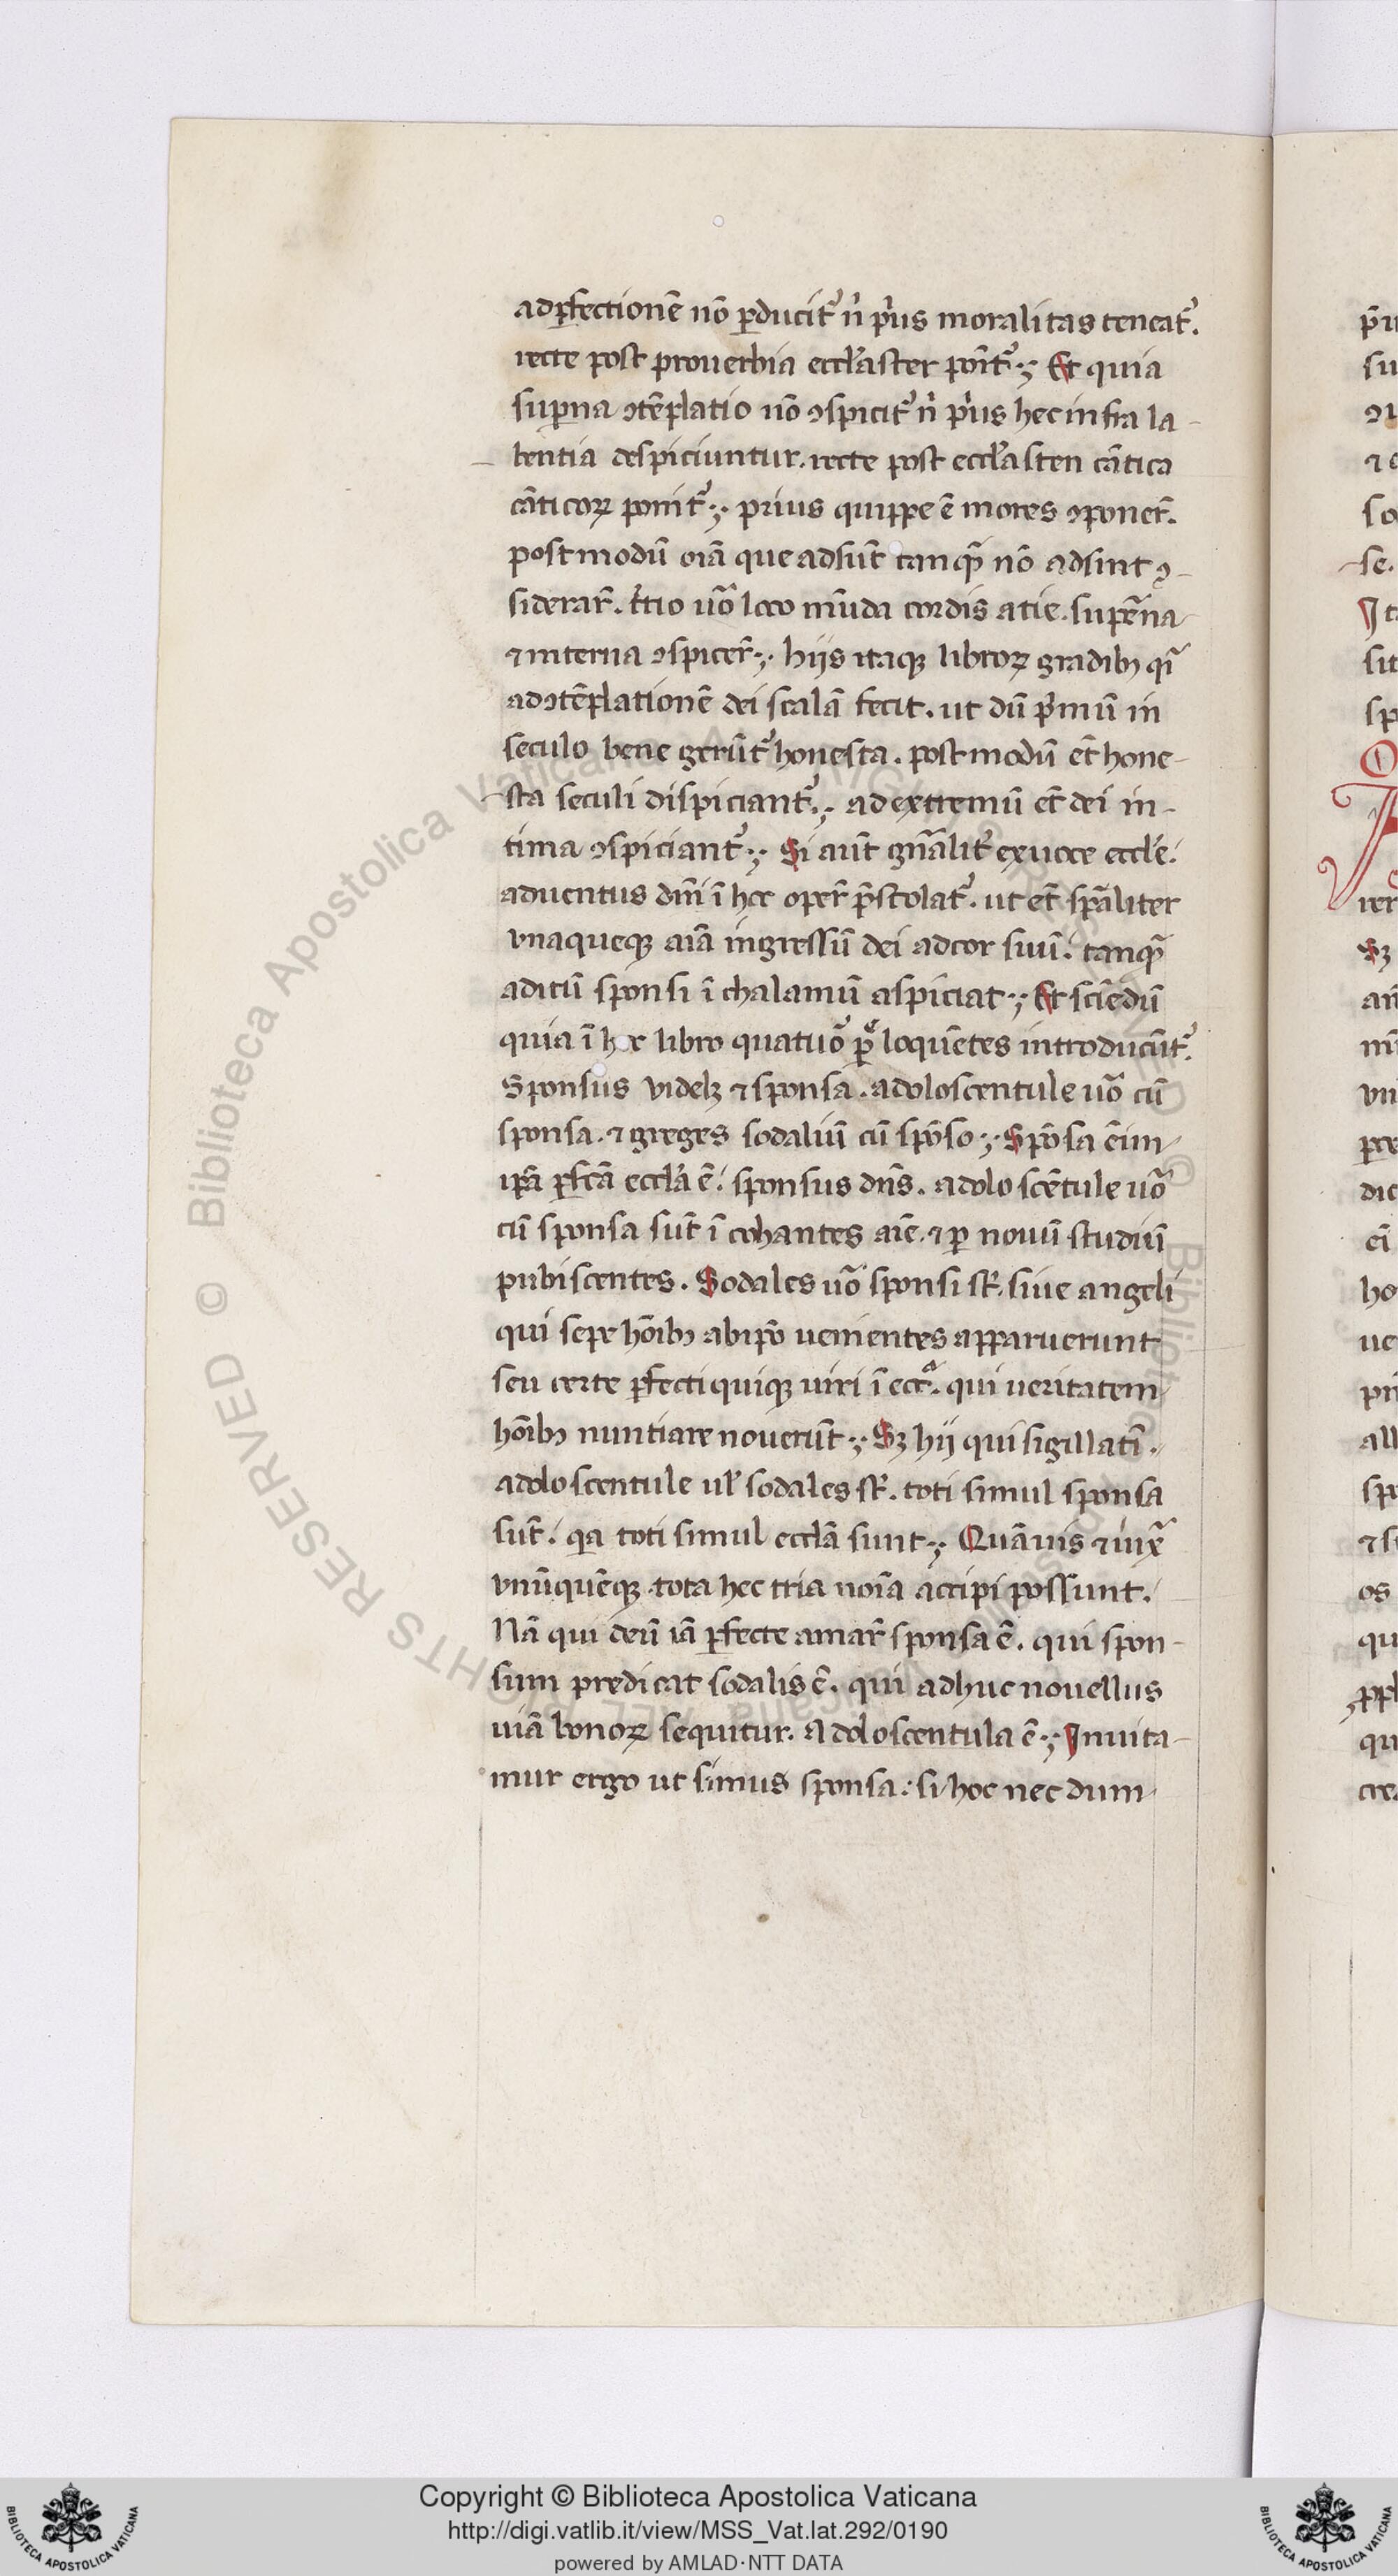 adꝑfectionē nō ꝑducit᷑ n̄ pͥus moralitas teneat᷑.
recte post prouerbia eccl̄aster pōit᷑ ⁊ Et quia
suꝑna ꝯtēplatio nō ꝯspicit᷑ n̄ pͥus hec infra la-
bentia despiciuntur. recte post eccl̄asten cātica
cāticoꝝ ponit᷑. prius quippe ē mores ꝯponer̄.
postmodū oīa que adsūt tanqᷓ nō adsint ꝯ-
siderar̄. t̄tio uͦo loco mūda cordis acie. supᷓna
⁊ interna ꝯspicer̄. hijs itaqꝫ libroꝝ gradibꝫ qͥ
adꝯtēplationē dei scalā fecit. ut dū pͥmū in
seculo bene gerūt᷑ honesta. postmodū et̄ hone-
sta seculi dispiciant᷑. ad extremū et̄ dei in-
tima ꝯspiciant᷑. Si aūt gn̄alit̄ ex uoce eccl̄e.
aduentus dn̄i ī hoc oper̄ p̄stolat᷑. ut et̄ sp̄aliter
vnaqueqꝫ aīa ingressū dei adcor suū. tanqᷓ
aditū sponsi ī thalamū aspiciat. Et sciēdū
quia ī hoc libro quatuōr ꝑͤ loquētes introducūt᷑.
Sponsus videlꝫ ⁊ sponsa. adoloscentule uͦo cū
sponsa. ⁊ greges sodaliū cū spōso. Spōsa eīm
ip̄a ꝑfcā eccl̄a ē. sponsus dn̄s. adoloscētule uͦo
cū sponsa sūt ī cohantes aīe. ⁊ ꝑ nouū studiū
pubiscentes. Sodales uͦo sponsi st̄. siue angeli
qui sepe hōibꝫ abip̄o uenientes apparuerunt
seu certe ꝑfecti quiqꝫ uiri ī eccᵃ. qui ueritatem
hōibꝫ nuntiare nouerūt. Sꝫ hij qui sigillatī.
adoloscentule ul̄ sodales st̄. toti simul sponsa
sūt. qͥa toti simul eccl̄a sunt. Quāuis ⁊ iuxᷓ
vnūquēqꝫ tota hec tria noīa accipi possunt.
Nā qui deū iā ꝑfecte amar̄ sponsa ē. qui spon-
sum predicat sodalis ē. qui adhuc nouellus
uiā bonoꝝ sequitur. Adoloscentula ē. Inuita-
mur ergo ut simus sponsa. si hoc nec dum
Copyright © Biblioteca Apostolica Vaticana
http://digi.vatlib.it/view/MSS_Vat.lat.292/0190
powered by AMLAD·NTT DATA